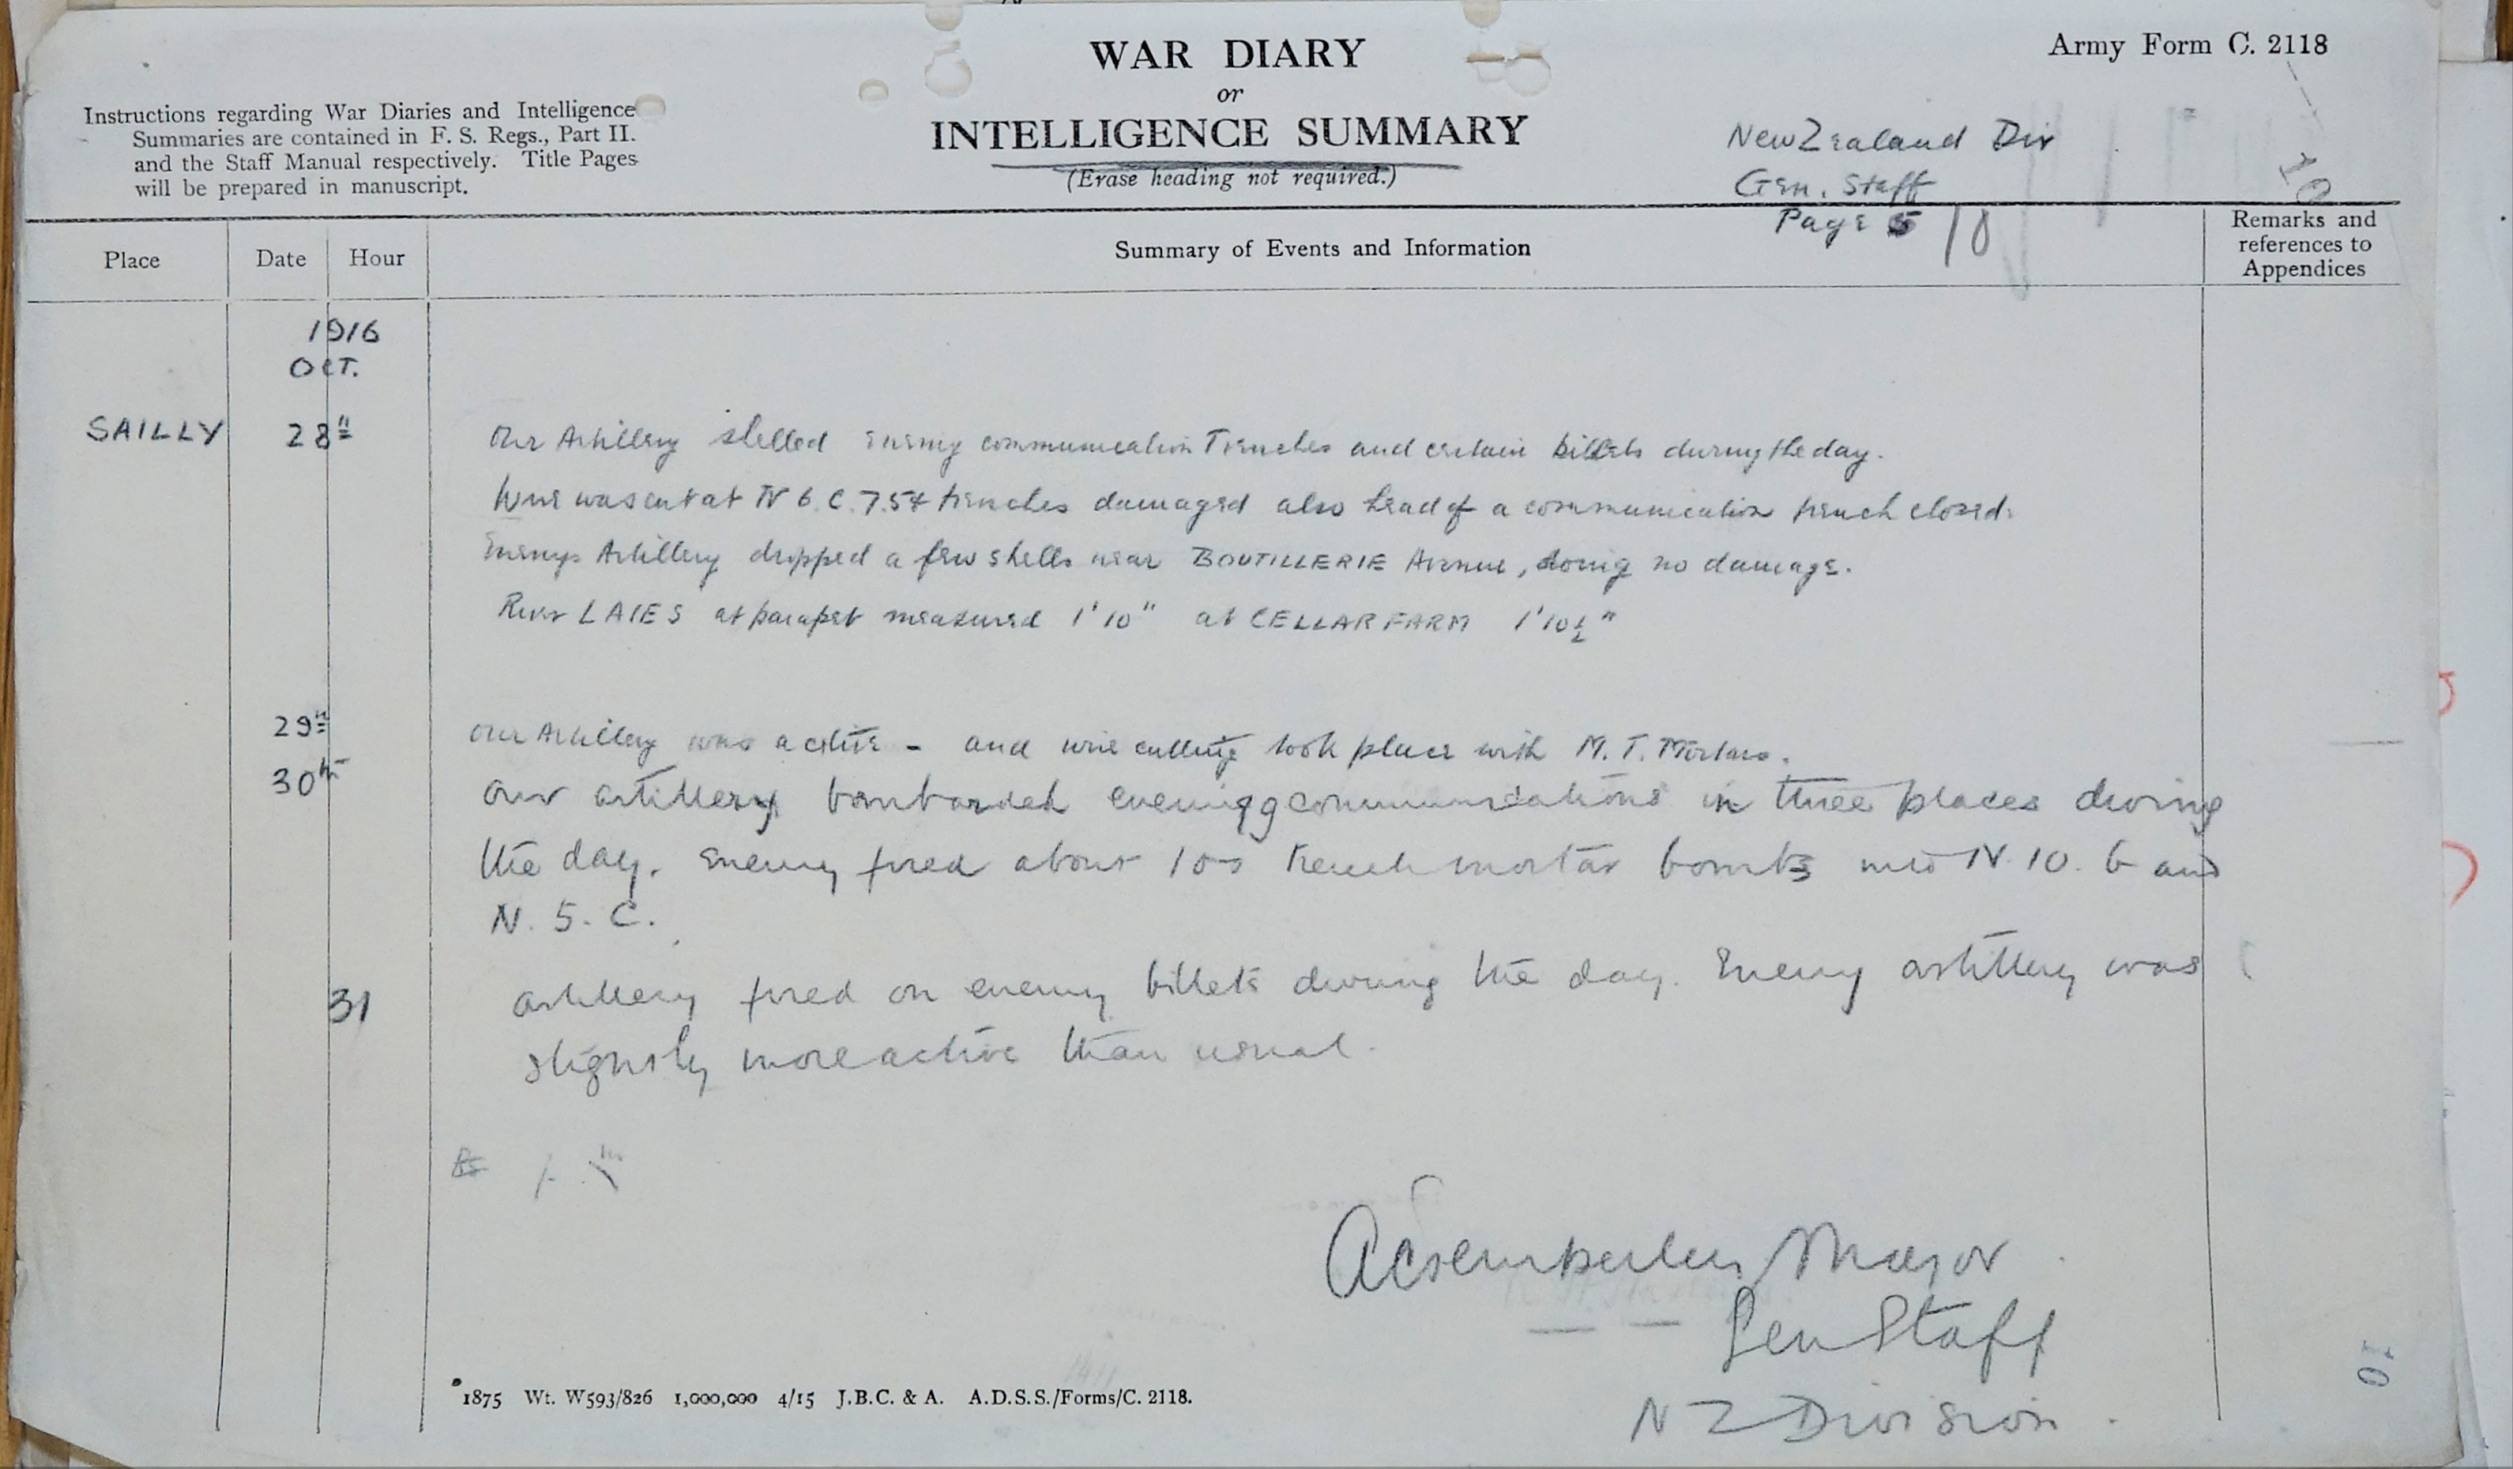 WAR DIARY
or
INTELLIGENCE SUMMARY
(Erase heading not required.)
Army Form C. 2118
Instructions regarding War Diaries and Intelligence
Summaries are contained in F. S. Regs., Part II.
and the Staff Manual respectively. Title Pages
will be prepared in manuscript.
New Zealand Div
Gen. Staff
Page 5 / 8
Place
Date
Hour
Summary of Events and Information
Remarks and
references to
Appendices
1916
OCT.
SAILLY
28th
Our Artillery shelled enemy communication Trenches and certain billets during the day.
Wire was cut at N 6. C. 7.5 trenches damaged also head of a communication trench closed.
Enemys Artillery dropped a few shells near BOUTILLERIE Avenue, doing no damage.
River LAIES at parapet measured 1'10" at CELLAR FARM 1'10½"
29th
Our Artillery was active - and wire cutting took place with M. T. Mortars.
30th
Our artillery bombarded communications in three places during
the day. Enemy fired about 100 trench mortar bombs into N. 10. b and
N. 5. C.
31
Artillery fired on enemy billets during the day. Enemy artillery was
slightly more active than usual.
Major
Gen Staff
N Z Division.
1875 Wt. W593/826 1,000,000 4/15 J.B.C. & A. A.D.S.S./Forms/C. 2118.
10